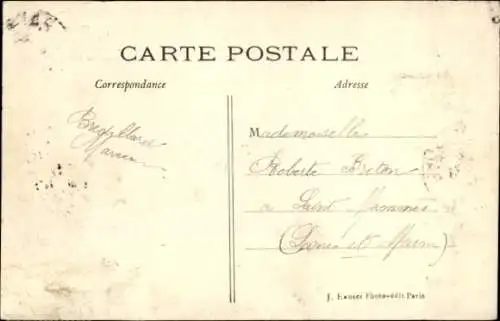 CARTE POSTALE
Correspondance
Adresse
Mademoiselle
Roberte Breton
a Saint Mammès
(Seine et Marne)
J. Hauser Photo-édit Paris